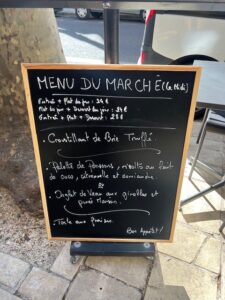 MENU DU MARCHÉ (Le Midi)
Entrée + Plat du jour : 24 €
Plat du jour + Dessert du jour : 24 €
Entrée + Plat + Dessert : 28 €
. Croustillant de Brie Truffé.
. Palette de poissons, risotto au lait
de coco, citronnelle et
ou
. Onglet de Veau aux girolles et
purée Maison.
. Tarte aux
Bon Appétit !